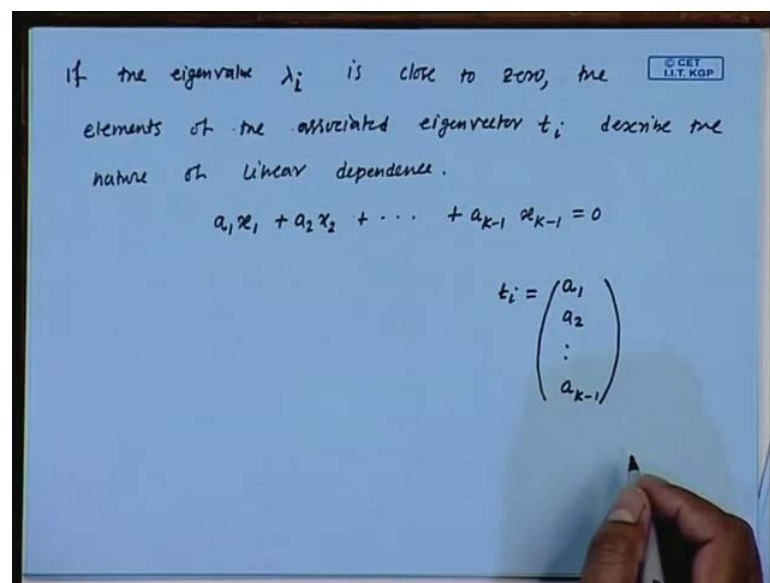 If the eigenvalue λi is close to zero, the
© CET
I.I.T. KGP
elements of the associated eigenvector ti describe the
nature of linear dependence.
a1x1 + a2x2 + ... + ak-1 xk-1 = 0
ti = (a1
a2
:
ak-1)